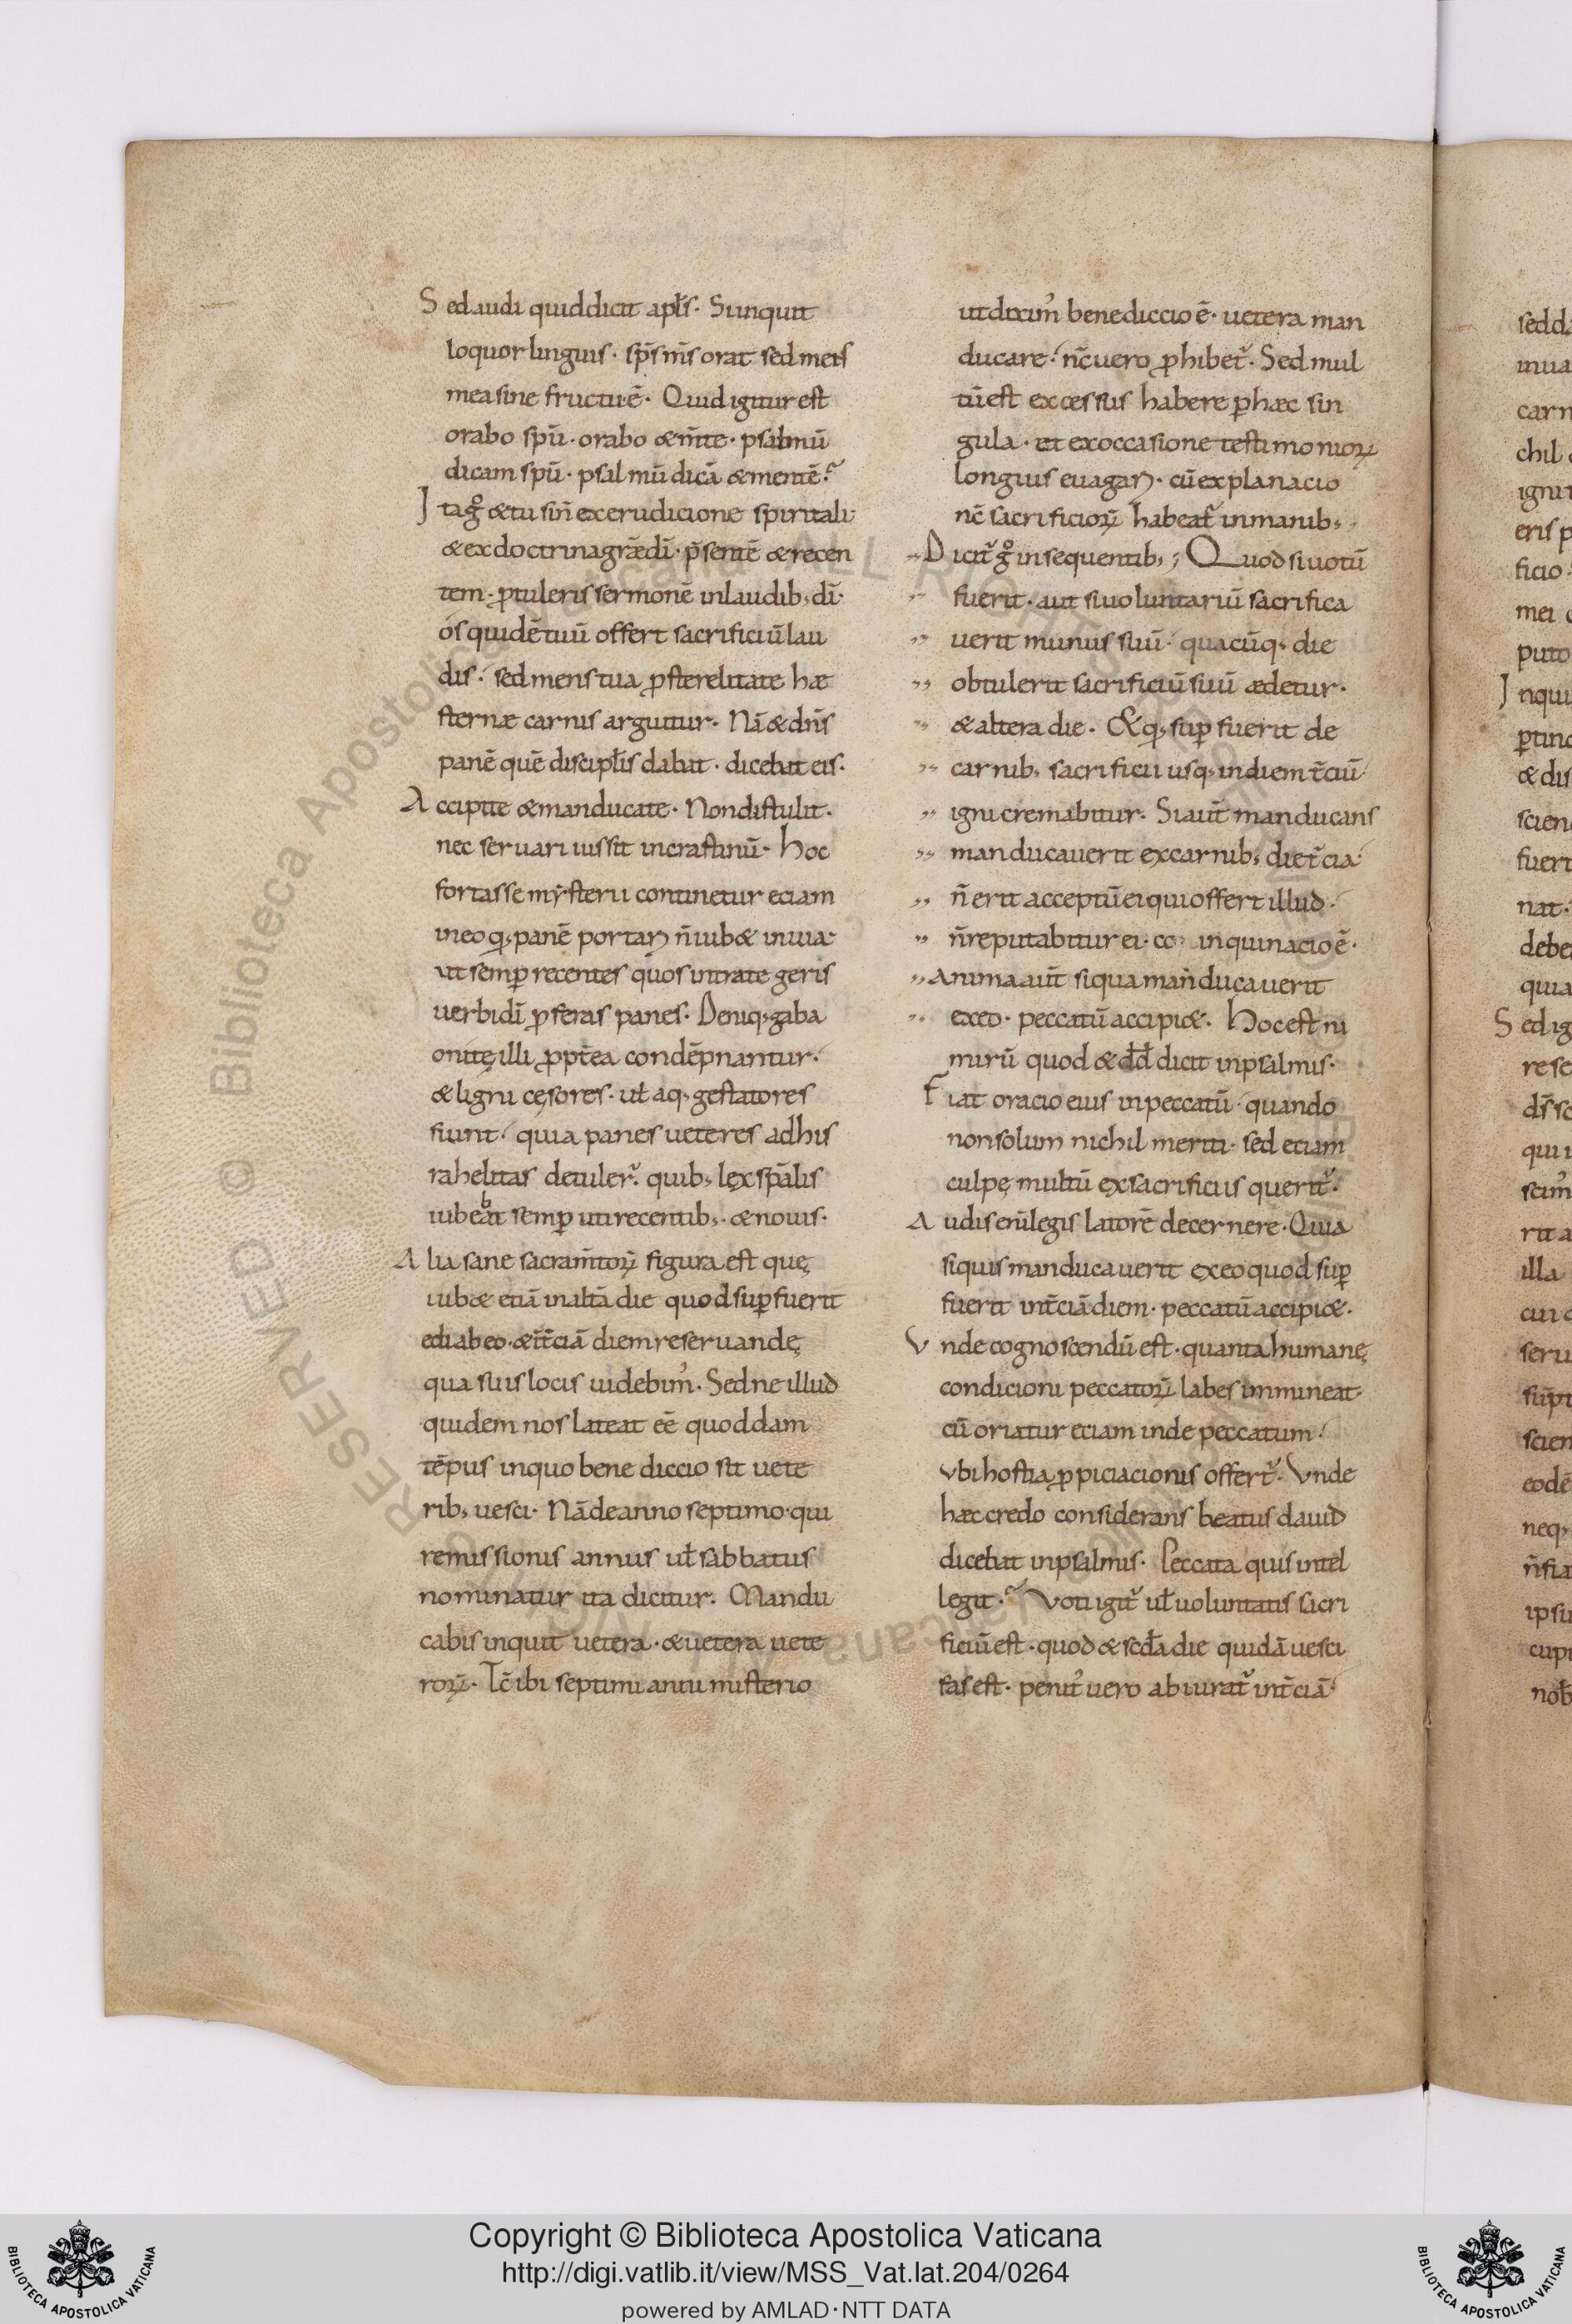 Sed audi quid dicit apłs · Si inquit
loquor linguis · sp̄s m̄s orat sed mens
mea sine fructu ē · Quid igitur est
orabo spū · orabo & m̄te · psalmū
dicam spū · psalmū dicā & mente
Itaq̊ & tu sin̄ ex erudicione spiritali
& ex doctrina grædi · p̄sentē & recen
tem · ptuleris sermonē in laudib; dī ·
os quidē tuū offert sacrificiū lau
dis · sed mens tua p sterelitate hæ
sternæ carnis arguitur · Nā & dn̄s
panē quē discipłis dabat · dicebat eis ·
Accipite & manducate · Non distulit ·
nec seruari iussit in crastinū · Hoc
fortasse mẏsterii continetur eciam
in eo q; panē portari n̄ iub& in uia ·
ut semp recentes quos intra te geris
uerbi dī p feras panes · Deniq; gaba
onitę illi ppt̄ea condēpnantur ·
& ligni cęsores · uł aq; gestatores
fiunt · quia panes ueteres ad his
rahelitas detuler̄ · quib; lex sp̄alis
iubebat semp uti recentib; · & nouis ·
Alia sane sacram̄torꝝ figura est quę
iub& etiā in altā die quod sup fuerit
edi ab eo · & t̄ciā diem reseruandę
qua suis locis uidebim᾽ · Sed ne illud
quidem nos lateat eē quoddam
tēpus in quo benediccio sit uete
rib; uesci · Nā de anno septimo · qui
remissionis annus uł sabbatus
nominatur ita dicitur · Mandu
cabis inquit uetera · & uetera uete
rorꝝ · Ic̄ ibi septimi anni misterio
ut dixim᾽ benediccio ē · uetera man
ducare · nc̄ uero phibet᾽ · Sed mul
tū est excessus habere p hæc sin
gula · et ex occasione testimoniorꝝ
longius euagari · cū explanacio
nc̄ sacrificiorꝝ habeat᾽ in manib; ·
Dicit᾽ g̊ in sequentib; ; Quod si uotū
fuerit · aut si uoluntariū sacrifica
uerit munus suū · quacūq; die
obtulerit sacrificiū suū ædetur ·
& altera die · & q; sup fuerit de
carnib; sacrificii usq; in diem t̄ciū ·
igni cremabitur · Si aut̄ manducans
manducauerit ex carnib; die t̄cia ·
n̄ erit acceptū ei qui offert illud ·
n̄ reputabitur ei · inquinacio ē ·
Anima aut̄ siqua manducauerit
ex eo · peccatū accipi& · Hoc est ni
mirū quod & dd̄ dicit in psalmis ·
Fiat oracio eius in peccatū · quando
non solum nichil meriti · sed eciam
culpę multū ex sacrificiis querit᾽ ·
Audis eni legis latorē decernere · Quia
siquis manducauerit ex eo quod sup
fuerit in t̄ciā diem · peccatū accipi& ·
Vnde cognoscendū est · quanta humanę
condicioni peccatorꝝ labes immineat ·
cū oriatur eciam inde peccatum ·
vbi hostia ppiciacionis offert᾽ · Vnde
hæc credo considerans beatus dauid
dicebat in psalmis · Peccata quis intel
legit · Voti igit᾽ uł uoluntatis sacri
ficiū est · quod & scd̄a die quidā uesci
fas est · penit᾽ uero abiurat᾽ in t̄ciā ·
Copyright © Biblioteca Apostolica Vaticana
http://digi.vatlib.it/view/MSS_Vat.lat.204/0264
powered by AMLAD·NTT DATA